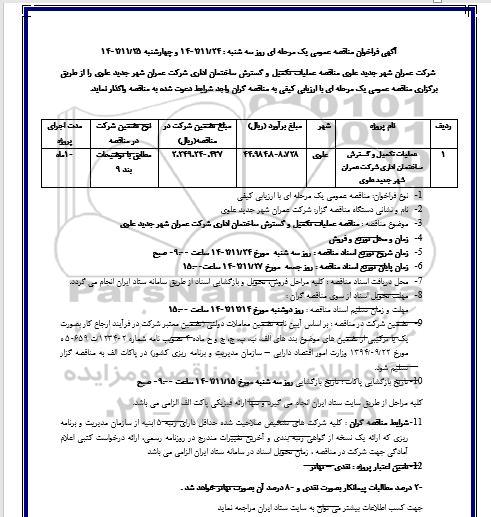 آگهی فراخوان مناقصه عمومی یک مرحله ای روز سه شنبه : ۱۴۰۲/۱۱/۲۴ و چهارشنبه ۱۴۰۲/۱۱/۲۵
شرکت عمران شهر جدید علوی مناقصه عملیات تکمیل و گسترش ساختمان اداری شرکت عمران شهر جدید علوی را از طریق
برگزاری مناقصه عمومی یک مرحله ای با ارزیابی کیفی به مناقصه گران واجد شرایط دعوت شده به مناقصه واگذار نماید.
ردیف نام پروژه شهر مبلغ برآورد (ریال) مبلغ تضمین شرکت در مناقصه(ریال) نوع تضمین شرکت در مناقصه مدت اجرای پروژه
۱ عملیات تکمیل و گسترش ساختمان اداری شرکت عمران شهر جدید علوی علوی مطابق با توضیحات بند ۹ ۱۰ماه
1- نوع فراخوان: مناقصه عمومی یک مرحله ای با ارزیابی کیفی
2- نام و نشانی دستگاه مناقصه گزار: شرکت عمران شهر جدید علوی
3- موضوع مناقصه : مناقصه عملیات تکمیل و گسترش ساختمان اداری شرکت عمران شهر جدید علوی
4- زمان و محل توزیع و فروش
5- زمان شروع توزیع اسناد مناقصه : روز سه شنبه مورخ ۱۴۰۲/۱۱/۲۴ ساعت ۰۹:۰۰ صبح
6- زمان پایان توزیع اسناد مناقصه : روز جمعه مورخ ۱۴۰۲/۱۱/۲۷ ساعت ۱۵:۰۰
7- محل دریافت اسناد مناقصه : کلیه مراحل فروش تحویل و بازگشایی اسناد از طریق سامانه ستاد ایران انجام می گردد.
8- مهلت تحویل اسناد از سوی مناقصه گران :
مهلت و زمان تسلیم اسناد مناقصه : روز دوشنبه مورخ ساعت ۱۵:۰۰
9- تضمین شرکت در مناقصه : بر اساس آیین نامه تضمین معاملات دولتی (تضمین معتبر شرکت در فرآیند ارجاع کار بصورت
یک یا ترکیبی از تضمین های موضوع بند های الف، ب، پ، ج، چ و ح ماده ۴ تصویب نامه شماره
مورخ ۱۳۹۴/۰۹/۲۲ وزارت امور اقتصاد دارایی – سازمان مدیریت و برنامه ریزی کشور) در پاکات الف به مناقصه گزار
تسلیم شود.
10- تاریخ بازگشایی پاکات : تاریخ بازگشایی روز سه شنبه مورخ ساعت ۰۹:۰۰ صبح
کلیه مراحل از طریق سایت ستاد ایران انجام می گیرد و تنها ارائه فیزیکی پاکت الف الزامی می باشد.
11- شرایط مناقصه گران : کلیه شرکت های تشخیص صلاحیت شده حداقل دارای رتبه ۵ ابنیه از سازمان مدیریت و برنامه
ریزی که ارائه یک نسخه از گواهی رتبه بندی و آخرین تغییرات مندرج در روزنامه رسمی، ارائه درخواست کتبی اعلام
آمادگی جهت شرکت در مناقصه ، زمان تحویل اسناد در سامانه ستاد ایران الزامی می باشد
12- تامین اعتبار پروژه : نقدی – تهاتر
۲۰ درصد مطالبات پیمانکار بصورت نقدی و ۸۰ درصد آن بصورت تهاتر خواهد شد .
جهت کسب اطلاعات بیشتر می توان به سایت ستاد ایران مراجعه نماید